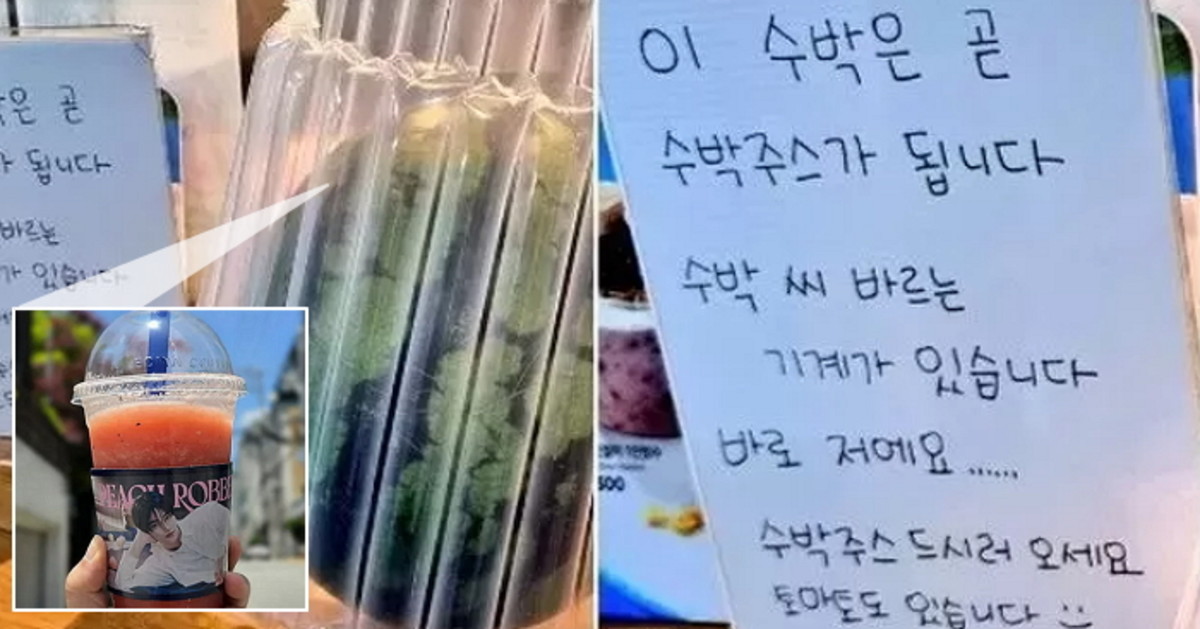 은 곧
가 됩니다
바르는
가 있습니다
PEACH ROBB
이 수박은 곧
수박주스가 됩니다
수박 씨 바르는
기계가 있습니다
바로 저예요......
수박주스 드시러 오세요
토마토도 있습니다 :)
500